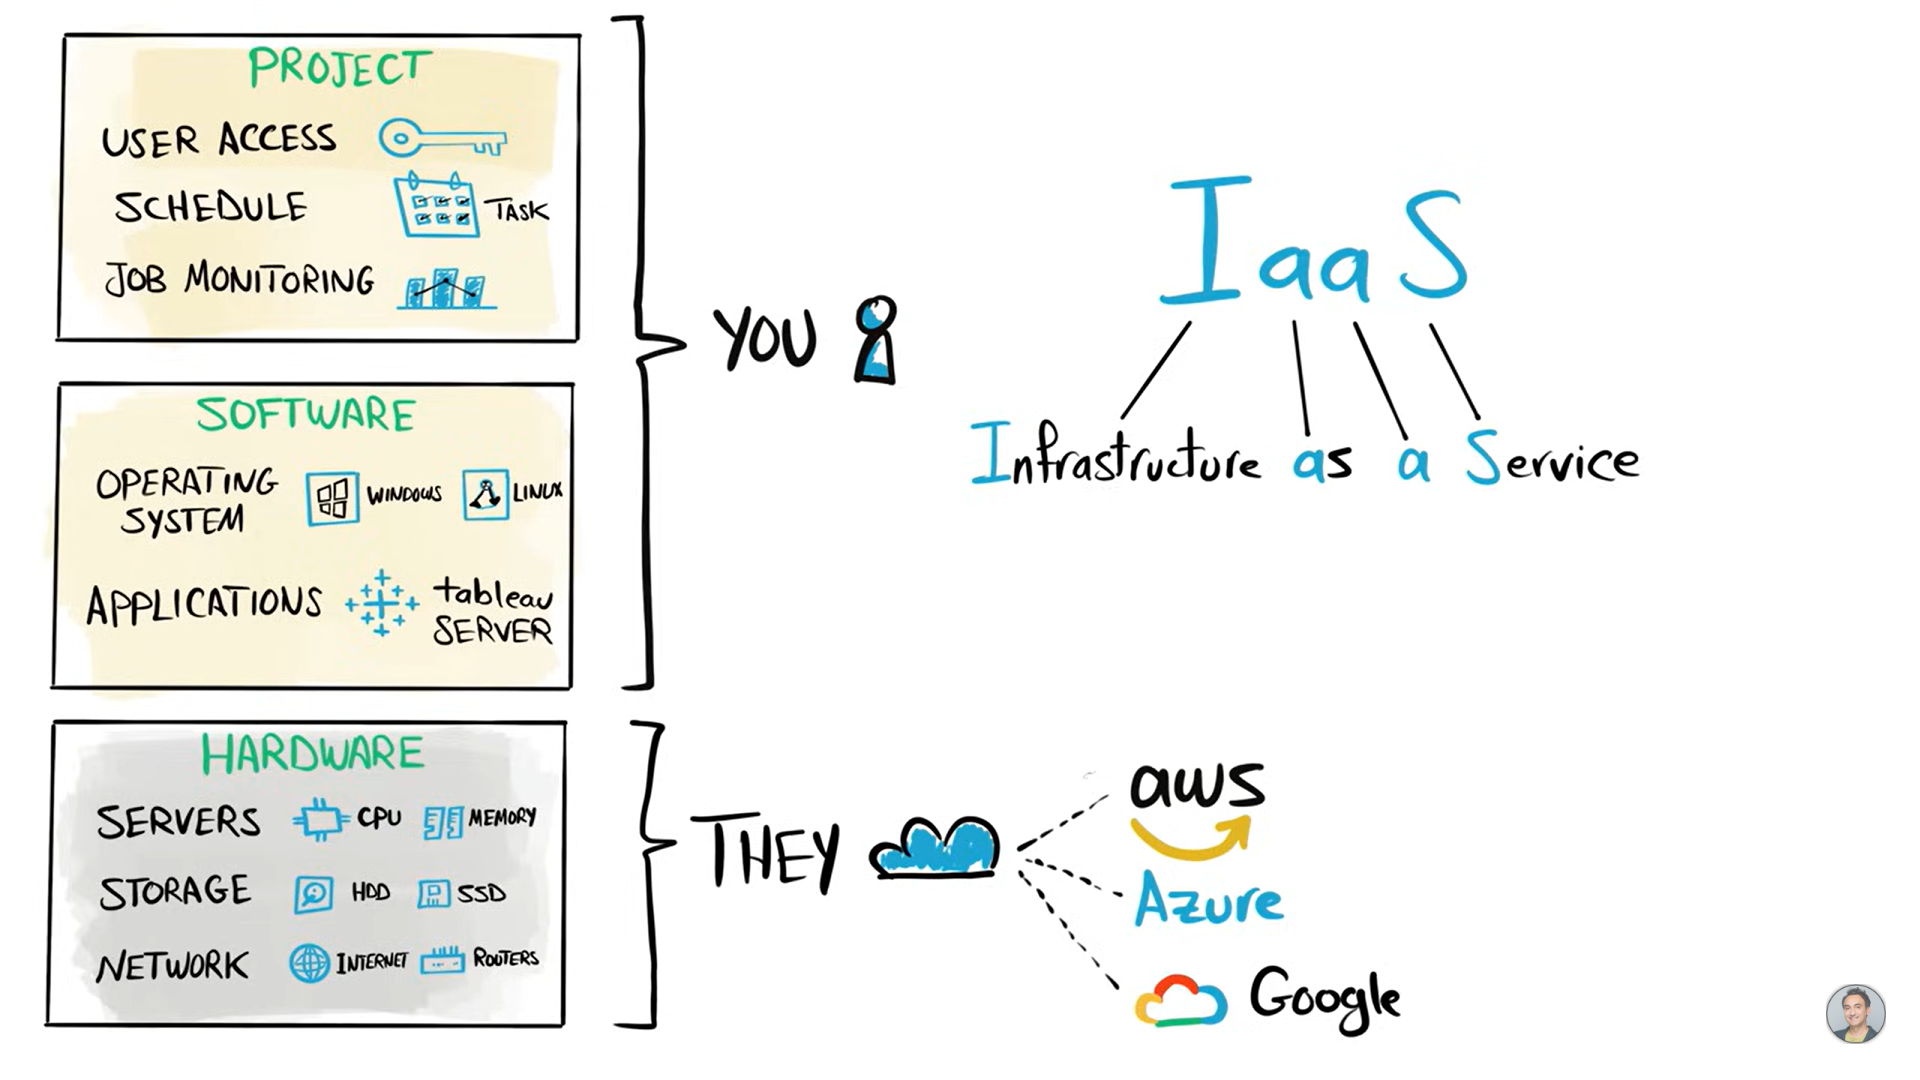 PROJECT
USER ACCESS
SCHEDULE TASK
JOB MONITORING
SOFTWARE
OPERATING SYSTEM WINDOWS LINUX
APPLICATIONS tableau SERVER
HARDWARE
SERVERS CPU MEMORY
STORAGE HDD SSD
NETWORK INTERNET ROUTERS
YOU
THEY
IaaS
Infrastructure as a Service
aws
Azure
Google